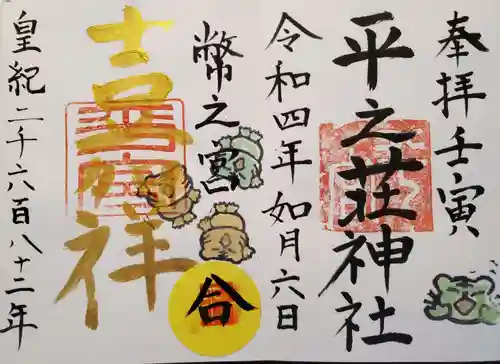 奉拝 壬寅
平之荘神社
令和四年如月六日
幣之宮
合
吉祥
皇紀二千六百八十二年